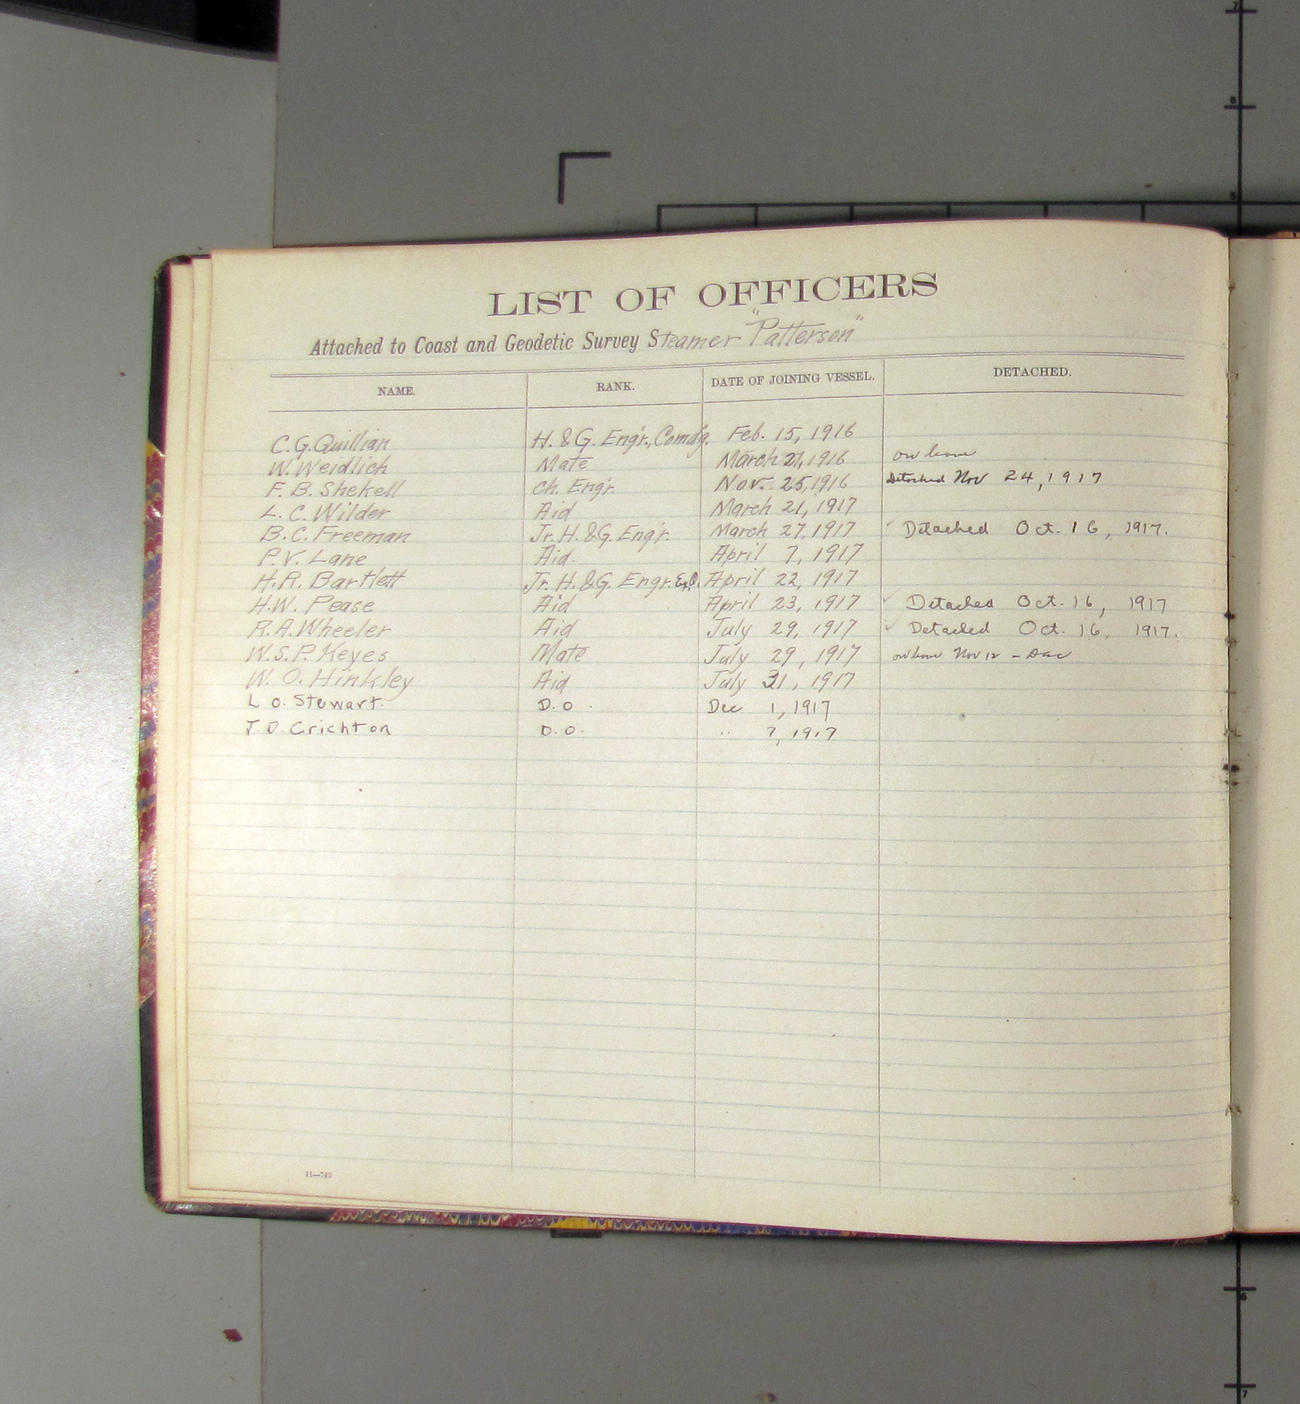 LIST OF OFFICERS
Attached to Coast and Geodetic Survey Steamer "Patterson"
NAME. RANK. DATE OF JOINING VESSEL. DETACHED.
C.G. Quillian H. & G. Engr., Comd'g. Feb. 15, 1916
W. Weidlich Mate March 21, 1916 on leave
F. B. Shekell Ch. Engr. Nov. 25, 1916 Detached Nov 24, 1917
L. C. Wilder Aid March 21, 1917
B. C. Freeman Jr. H. & G. Engr. March 27, 1917 Detached Oct. 16, 1917.
P. V. Lane Aid. April 7, 1917
H. R. Bartlett Jr. H. & G. Engr. April 22, 1917
H. W. Pease Aid April 23, 1917 Detached Oct. 16, 1917
R. A. Wheeler Aid July 29, 1917 Detached Oct. 16, 1917.
W. S. P. Keyes Mate July 29, 1917 on leave Nov 12 - Dec
W. O. Hinkley Aid July 31, 1917
L. O. Stewart. D. O. Dec 1, 1917
J. D. Crichton D. O. " 7, 1917
11—743